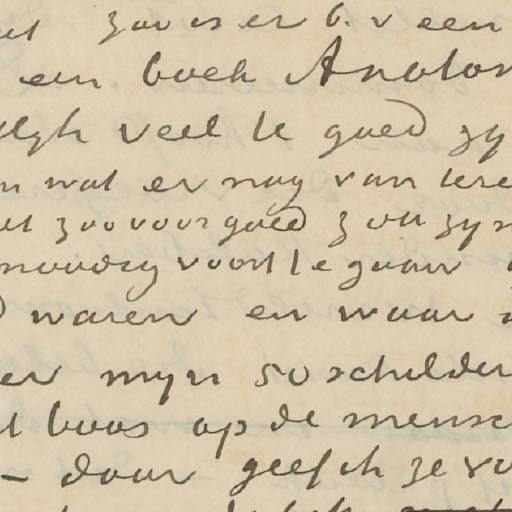 zoo is er b.v een
een boek Anatom
veel te goed zy
wat er nog van
zoo voor goed zou zyn
eenvoudig voort te gaan
waren en waar
er myn 50 schilder
boos op de mensc
- daar geef ik ze